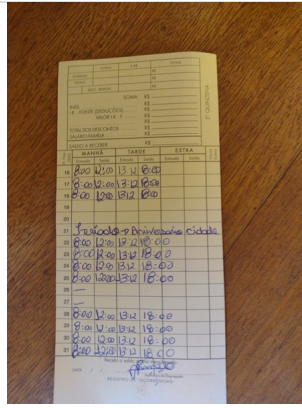 SOMA R$
INSS R$
I.R. - FONTE (DEDUÇÕES) R$
VALOR I.R. - F R$
R$
TOTAL DOS DESCONTOS R$
SALÁRIO-FAMÍLIA R$
SALDO A RECEBER R$
2ª QUINZENA
MANHÃ TARDE EXTRA
Entrada Saída Entrada Saída Entrada Saída
16 8:00 12:00 13:12 18:00
17 8:00 12:00 13:12 18:00
18 8:00 12:00 13:12 18:00
19
20
21 Feriado - Aniversário cidade
22 8:00 12:00 13:12 18:00
23 8:00 12:00 13:12 18:00
24 8:00 12:00 13:12 18:00
25 8:00 12:00 13:12 18:00
26 —
27 —
28 8:00 12:00 13:12 18:00
29 8:00 12:00 13:12 18:00
30 8:00 12:00 13:12 18:00
31 8:00 12:00 13:12 18:00
DATA